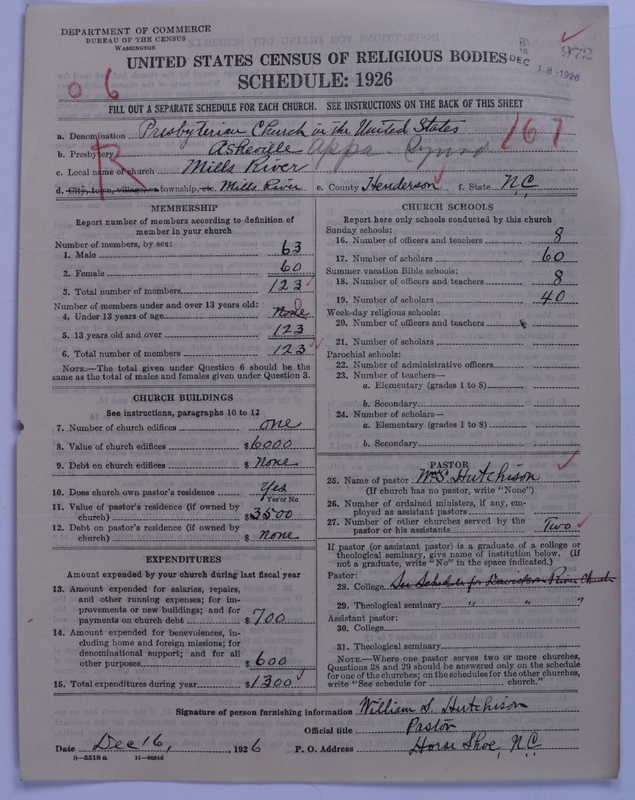 DEPARTMENT OF COMMERCE
BUREAU OF THE CENSUS
WASHINGTON
972
DEC 18 1926
UNITED STATES CENSUS OF RELIGIOUS BODIES
SCHEDULE: 1926
06
FILL OUT A SEPARATE SCHEDULE FOR EACH CHURCH. SEE INSTRUCTIONS ON THE BACK OF THIS SHEET
a. Denomination Presbyterian Church in the United States
167
b. Presbytery Asheville Appa. Synod
R
c. Local name of church Mills River
d. City, town, village, or township, etc. Mills River e. County Henderson f. State N.C.
MEMBERSHIP
Report number of members according to definition of member in your church
Number of members, by sex:
1. Male 63
2. Female 60
3. Total number of members 123
Number of members under and over 13 years old:
4. Under 13 years of age None
5. 13 years old and over 123
6. Total number of members 123
NOTE.—The total given under Question 6 should be the
same as the total of males and females given under Question 3.
CHURCH BUILDINGS
See instructions, paragraphs 10 to 12
7. Number of church edifices one
8. Value of church edifices $6000
9. Debt on church edifices $ None
10. Does church own pastor's residence Yes
Yes or No
11. Value of pastor's residence (if owned by
church) $3500
12. Debt on pastor's residence (if owned by
church) $ None
EXPENDITURES
Amount expended by your church during last fiscal year
13. Amount expended for salaries, repairs,
and other running expenses; for im-
provements or new buildings; and for
payments on church debt $700
14. Amount expended for benevolences, in-
cluding home and foreign missions; for
denominational support; and for all
other purposes $600
15. Total expenditures during year $1300
CHURCH SCHOOLS
Report here only schools conducted by this church
Sunday schools:
16. Number of officers and teachers 8
17. Number of scholars 60
Summer vacation Bible schools:
18. Number of officers and teachers 8
19. Number of scholars 40
Week-day religious schools:
20. Number of officers and teachers
21. Number of scholars
Parochial schools:
22. Number of administrative officers
23. Number of teachers—
a. Elementary (grades 1 to 8)
b. Secondary
24. Number of scholars—
a. Elementary (grades 1 to 8)
b. Secondary
PASTOR
25. Name of pastor Wm S. Hutchison
(If church has no pastor, write "None")
26. Number of ordained ministers, if any, em-
ployed as assistant pastors
27. Number of other churches served by the
pastor or his assistants Two
If pastor (or assistant pastor) is a graduate of a college or
theological seminary, give name of institution below. (If
not a graduate, write "No" in the space indicated.)
Pastor:
28. College See Schedule for Davidson River Church
29. Theological seminary " " "
Assistant pastor:
30. College
31. Theological seminary
NOTE.—Where one pastor serves two or more churches,
Questions 28 and 29 should be answered only on the schedule
for one of the churches; on the schedules for the other churches,
write "See schedule for church."
Signature of person furnishing information William S. Hutchison
Official title Pastor
Date Dec 16, 1926 P. O. Address Horse Shoe, N.C.
8—5518a